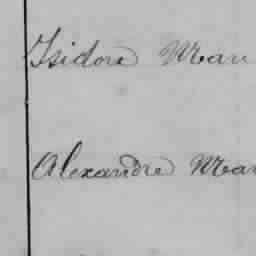 Isidore Mar
Alexandre Mar